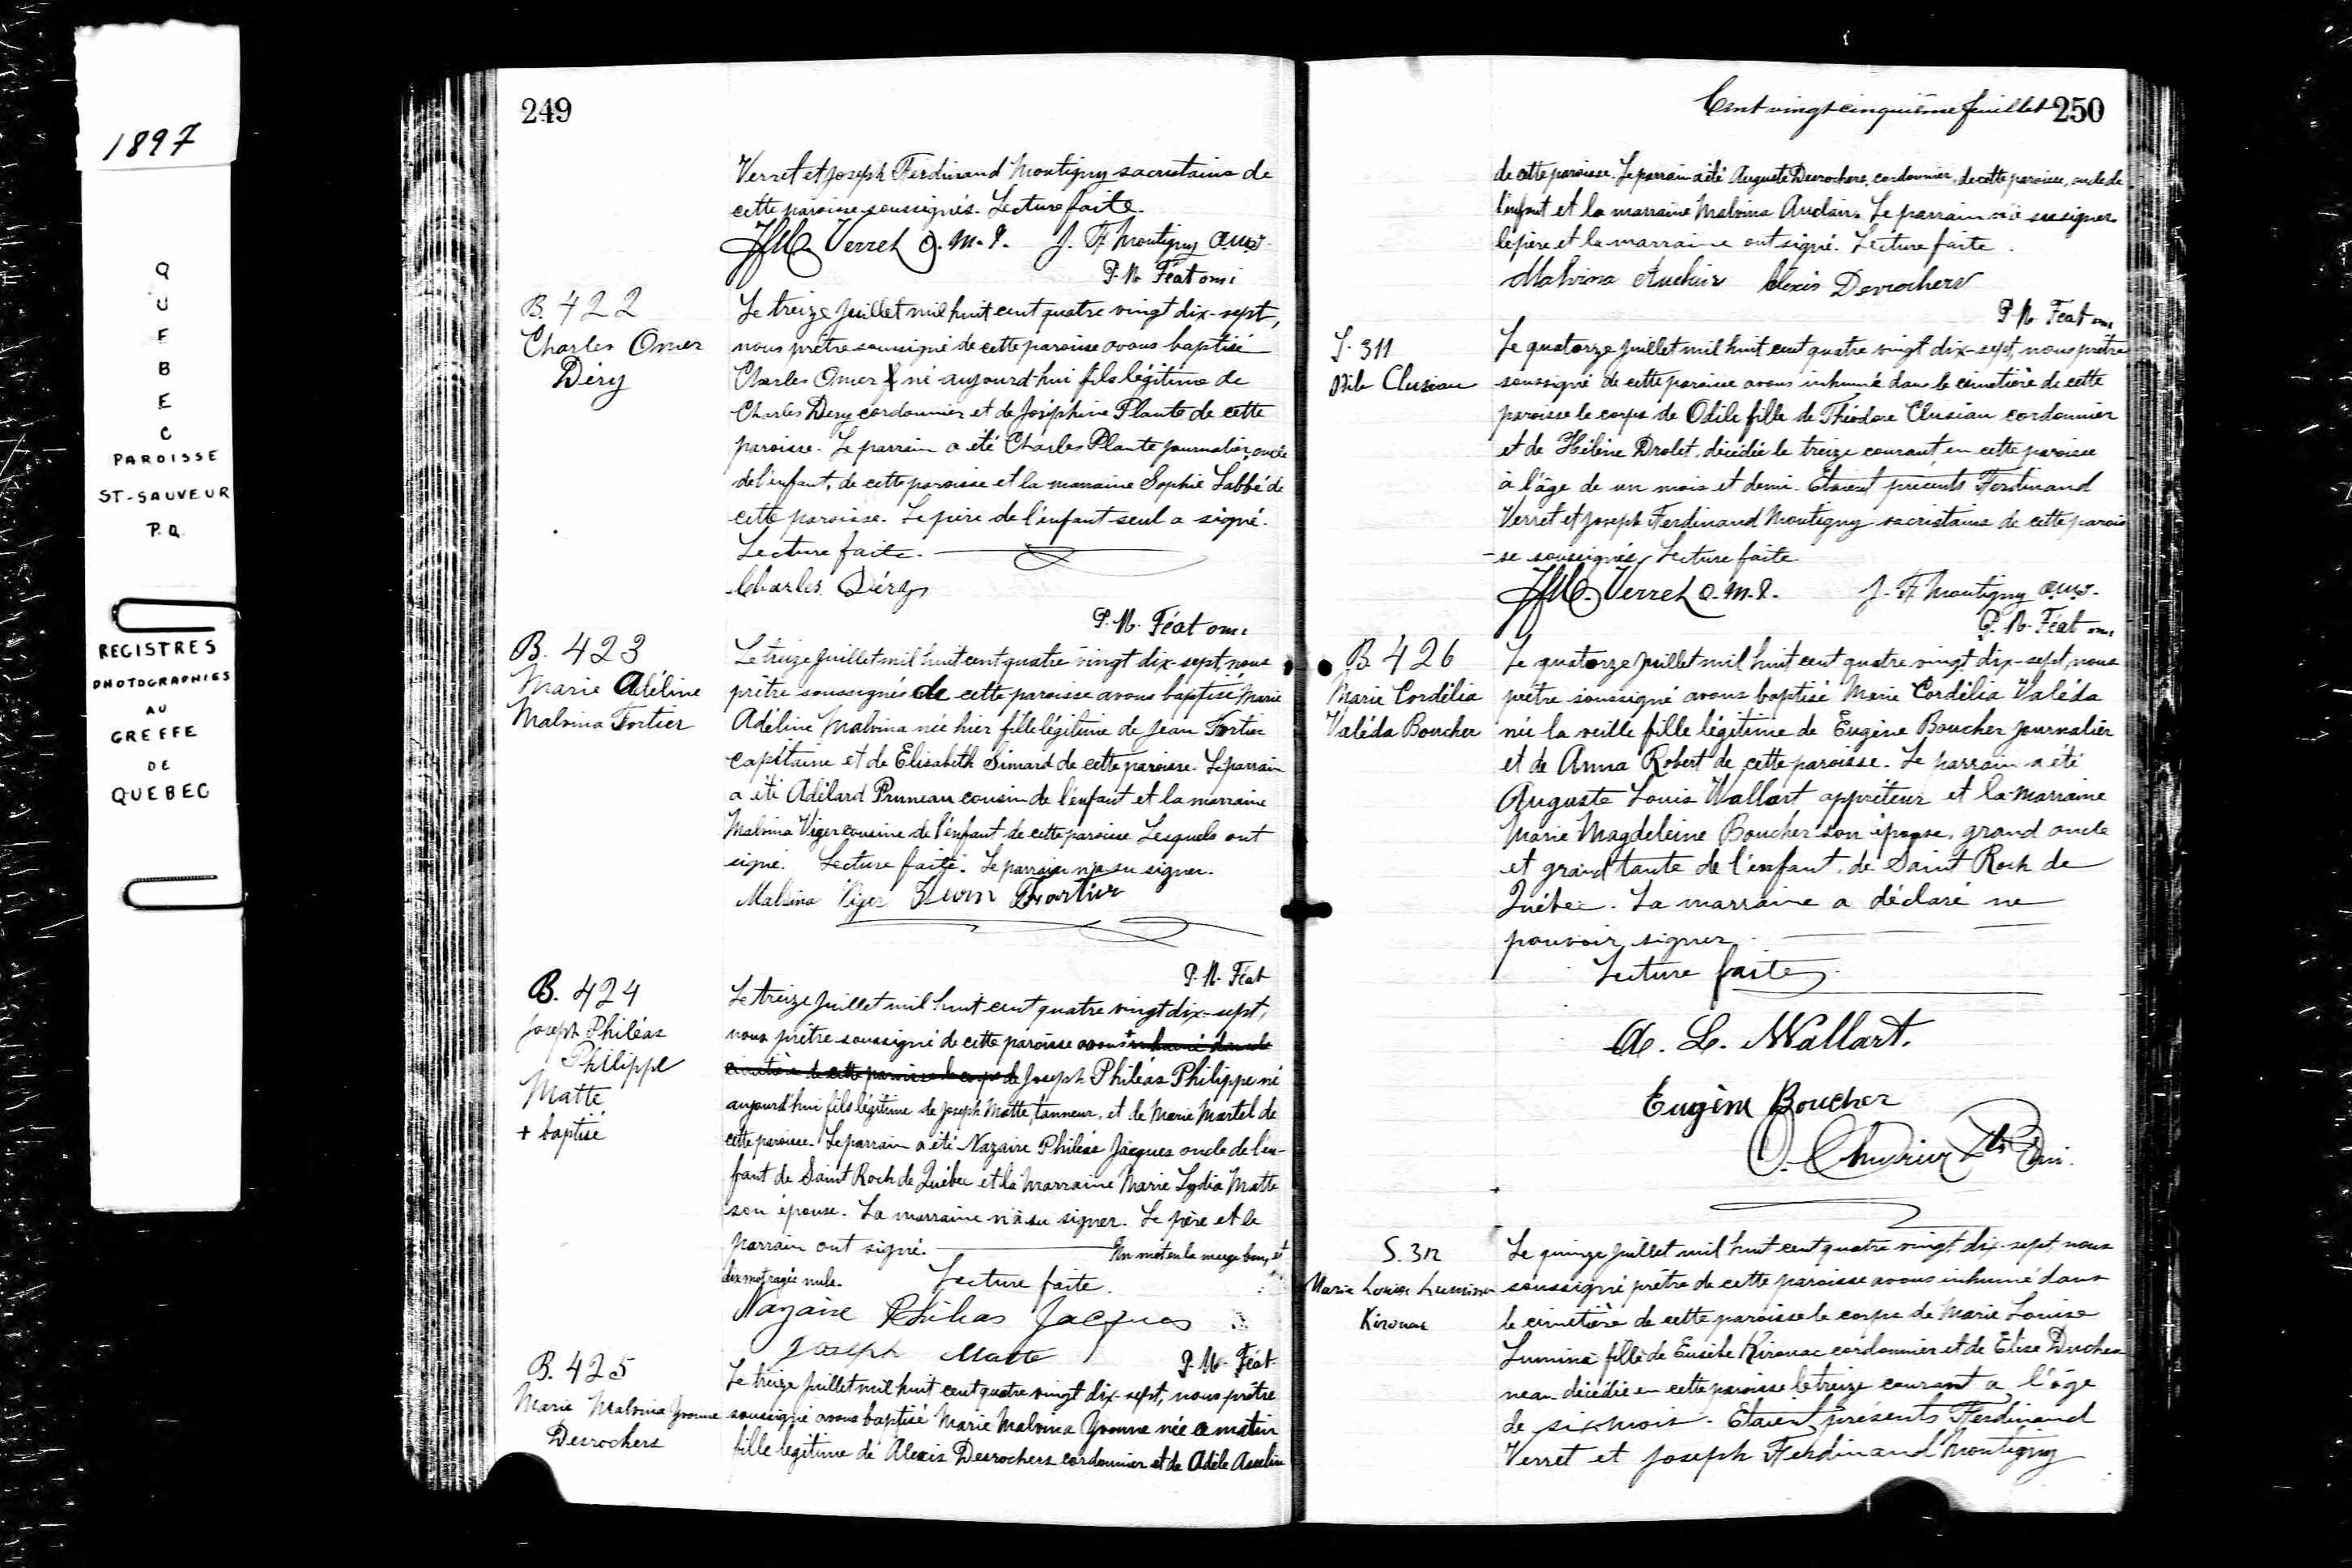 1897
Q
U
E
B
E
C
PAROISSE
ST-SAUVEUR
P.Q.
REGISTRES
PHOTOGRAPHIES
AU
GREFFE
DE
QUEBEC
249
Verret et Joseph Ferdinand Montigny sacristains de
cette paroisse soussignés. Lecture faite.
Verret O.M.I. J. F Montigny
P. N. Féat omi
B. 422
Charles Omer
Déry
Le treize juillet mil huit cent quatre vingt dix-sept,
nous prêtre soussigné de cette paroisse avons baptisé
Charles Omer né aujourd'hui fils légitime de
Charles Dery cordonnier et de Joséphine Plante de cette
paroisse. Le parrain a été Charles Plante journalier, oncle
de l'enfant, de cette paroisse et la marraine Sophie Labbé de
cette paroisse. Le père de l'enfant seul a signé.
Lecture faite.
Charles Déry
P. N. Féat omi
B. 423
Marie Adéline
Malvina Fortier
Le treize juillet mil huit cent quatre vingt dix-sept nous
prêtre soussignés de cette paroisse avons baptisé Marie
Adéline Malvina née hier fille légitime de Jean Fortier
capitaine et de Elisabeth Simard de cette paroisse. Le parrain
a été Adélard Pruneau cousin de l'enfant et la marraine
Malvina Viger cousine de l'enfant de cette paroisse Lesquels ont
signé. Lecture faite. Le parrain n'a su signer.
Malvina Viger Jean Fortier
P. N. Féat
B. 424
Joseph Philéas
Philippe
Matte
+ baptisé
Le treize juillet mil huit cent quatre vingt dix-sept,
nous prêtre soussigné de cette paroisse avons + inhumé dans le
cimetière de cette paroisse le corps de Joseph Philéas Philippe né
aujourd'hui fils légitime de Joseph Matte, tanneur, et de Marie Martel de
cette paroisse. Le parrain a été Nazaire Philéas Jacques oncle de l'en-
fant de Saint Roch de Québec et la Marraine Marie Lydia Matte
son épouse. La marraine n'a su signer. Le père et le
parrain ont signé. Un mot en la marge bon, et
dix mots rayés nuls. Lecture faite.
Nazaire Philias Jacques
Joseph Matte P. N. Féat
B. 425
Marie Malvina Yvonne
Desrochers
Le treize juillet mil huit cent quatre vingt dix-sept, nous prêtre
soussigné avons baptisé Marie Malvina Yvonne née ce matin
fille légitime de Alexis Desrochers cordonnier et de Adèle Asselin
Cent vingt cinquième feuillet 250
de cette paroisse. Le parrain a été Auguste Desrochers, cordonnier, de cette paroisse, oncle de
l'enfant et la marraine Malvina Auclair. Le parrain n'a su signer
le père et la marraine ont signé. Lecture faite.
Malvina Auclair Alexis Desrochers
P. N. Féat omi
S. 311
Odile Clusiau
Le quatorze juillet mil huit cent quatre vingt dix-sept, nous prêtre
soussigné de cette paroisse avons inhumé dans le cimetière de cette
paroisse le corps de Odile fille de Théodore Clusiau cordonnier
et de Hélène Drolet, décédée le treize courant en cette paroisse
à l'âge de un mois et demi. Etaient présents Ferdinand
Verret et Joseph Ferdinand Montigny sacristains de cette parois
-se soussignés. Lecture faite
Verret O.M.I. J. F Montigny
P. N. Féat omi
B 426
Marie Cordélia
Valéda Boucher
Le quatorze juillet mil huit cent quatre vingt dix-sept, nous
prêtre soussigné avons baptisé Marie Cordélia Valéda
née la veille fille légitime de Eugène Boucher journalier
et de Anna Robert de cette paroisse. Le parrain a été
Auguste Louis Wallart apprêteur et la Marraine
Marie Magdeleine Boucher son épouse, grand oncle
et grand'tante de l'enfant, de Saint Roch de
Québec. La marraine a déclaré ne
pouvoir signer.
Lecture faite.
A. L. Wallart.
Eugène Boucher
S. 312
Marie Louise Lumina
Kirouac
Le quinze juillet mil huit cent quatre vingt dix-sept, nous
soussigné prêtre de cette paroisse avons inhumé dans
le cimetière de cette paroisse le corps de Marie Louise
Lumina fille de Eusèbe Kirouac cordonnier et de Elise Duches
neau décédée en cette paroisse le treize courant à l'âge
de six mois. Etaient présents Ferdinand
Verret et Joseph Ferdinand Montigny